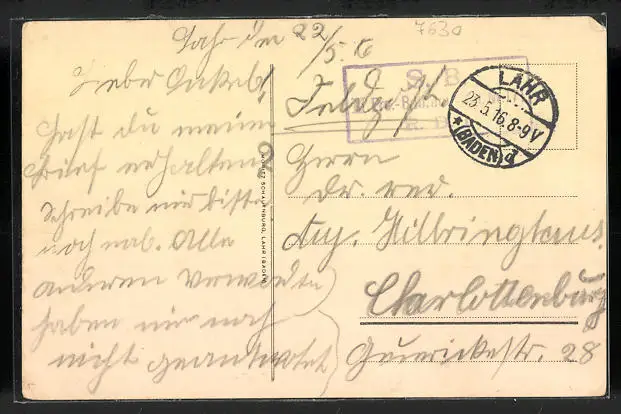 7630
Lahr den 22/5. 16
Lieber Onkel!
Hast du meinen
Brief erhalten?
Schreibe mir bitte
noch mal. Alle
anderen Verwandten
haben mir noch
nicht geantwortet
MORITZ SCHAUENBURG, LAHR (BADEN)
S. B.
LAHR
23.5.16.8-9V
*(BADEN)d
Herrn
Dr.
Aug. Hilbringhaus.
Charlottenburg
Guerickestr. 28